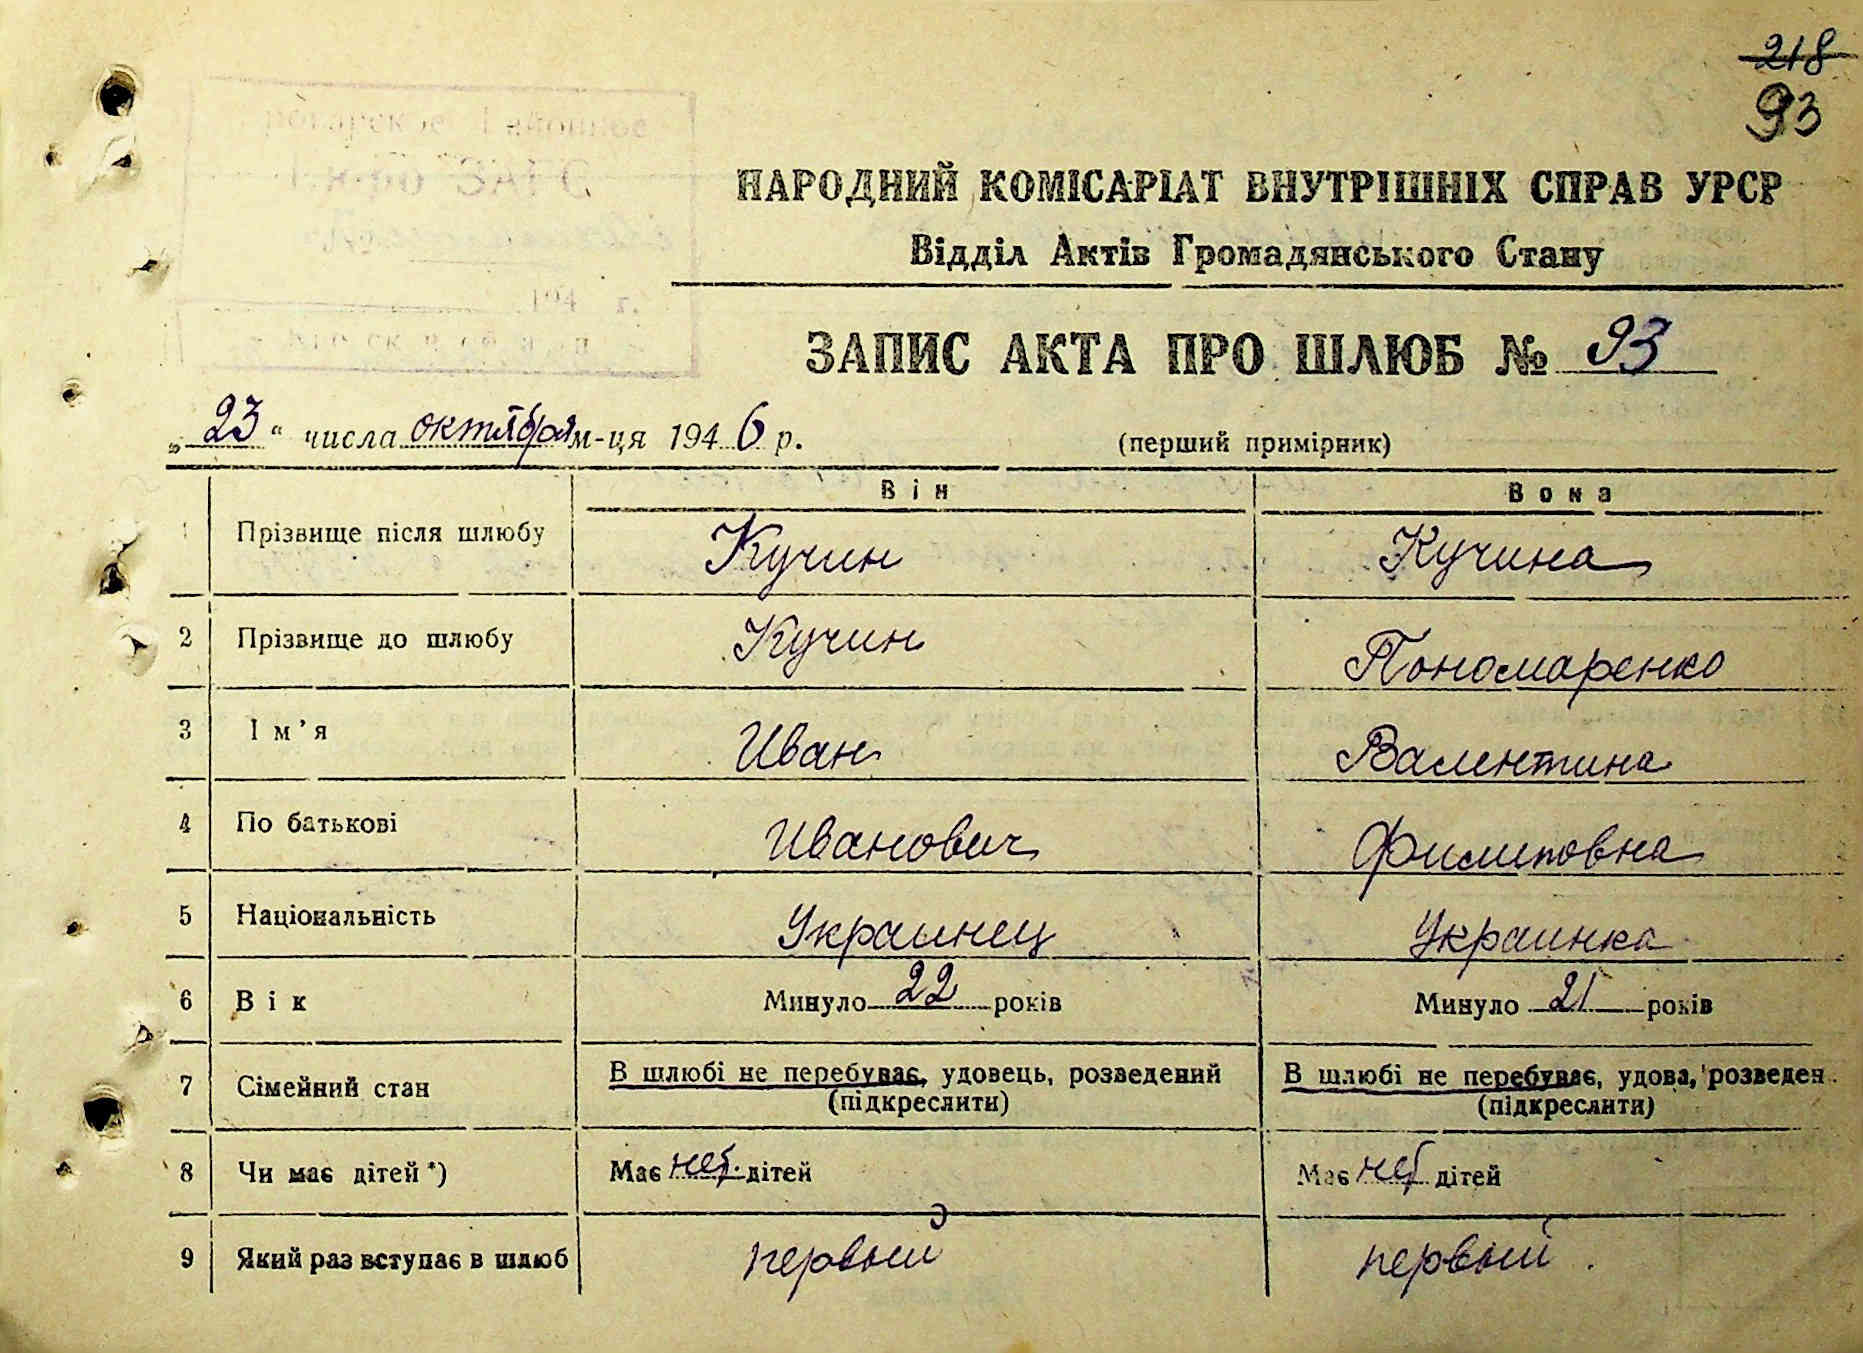 218
93
НАРОДНИЙ КОМІСАРІАТ ВНУТРІШНІХ СПРАВ УРСР
Відділ Актів Громадянського Стану
ЗАПИС АКТА ПРО ШЛЮБ № 93
„ 23 “ числа октября м-ця 194 6 р. (перший примірник)
Він Вона
1 Прізвище після шлюбу Кучин Кучина
2 Прізвище до шлюбу Кучин Пономаренко
3 Ім’я Иван Валентина
4 По батькові Иванович Филиповна
5 Національність Украинец Украинка
6 Вік Минуло 22 років Минуло 21 років
7 Сімейний стан В шлюбі не перебуває, удовець, розведений (підкреслити) В шлюбі не перебуває, удова, розведен. (підкреслити)
8 Чи має дітей *) Має нет. дітей Має нет дітей
9 Який раз вступає в шлюб первый первый .